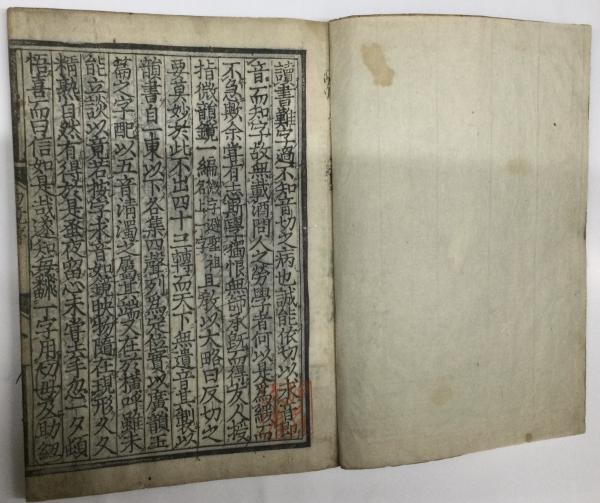 讀書難字過不知音切之病也誠能依切以求音即
音而知字故無載酒問人之勞學者何以是爲緩而
不急歟余嘗有志斯學獨恨無師承既而得友人授
指微韻鏡一編微字避聖祖名上一字且教以大略曰反切之
要莫妙於此不出四十三轉而天下無遺音其製以
韻書自一東以下各集四聲列爲定位實以廣韻玉
篇之字配以五音清濁之屬其端又在於橫呼雖未
能立談以竟若按字求音如鏡映物隨在現形久久
精熟自然有得於是蚤夜留心未嘗去手忽一夕頓
悟喜而曰信如是哉遂知每翻一字用切母及助紐